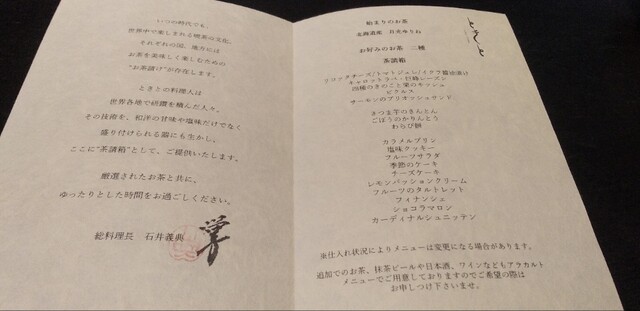 いつの時代でも、
世界中で楽しまれる喫茶の文化。
それぞれの国、地方には
お茶を美味しく楽しむための
“お茶請け”が存在します。
ときとの料理人は
世界各地で研鑽を積んだ人々。
その技術を、和洋の甘味や塩味だけでなく
盛り付けられる器にも生かし、
ここに“茶請箱”として、ご提供いたします。
厳選されたお茶と共に、
ゆったりとした時間をお過ごしください。
総料理長 石井義典
始まりのお茶
北海道産 月光ゆりね
お好みのお茶 二種
茶請箱
リコッタチーズ/トマトジュレ/イクラ醤油漬け
キャロットラペ・巨峰レーズン
四種のきのこと栗のキッシュ
ピクルス
サーモンのブリオッシュサンド
さつま芋のきんとん
ごぼうのかりんとう
わらび餅
カラメルプリン
塩味クッキー
フルーツサラダ
季節のケーキ
チーズケーキ
レモンパッションクリーム
フルーツのタルトレット
フィナンシェ
ショコラマロン
カーディナルシュニッテン
※仕入れ状況によりメニューは変更になる場合があります。
追加でのお茶、抹茶ビールや日本酒、ワインなどもアラカルト
メニューでご用意しておりますのでご希望の際は
お申しつけ下さいませ。